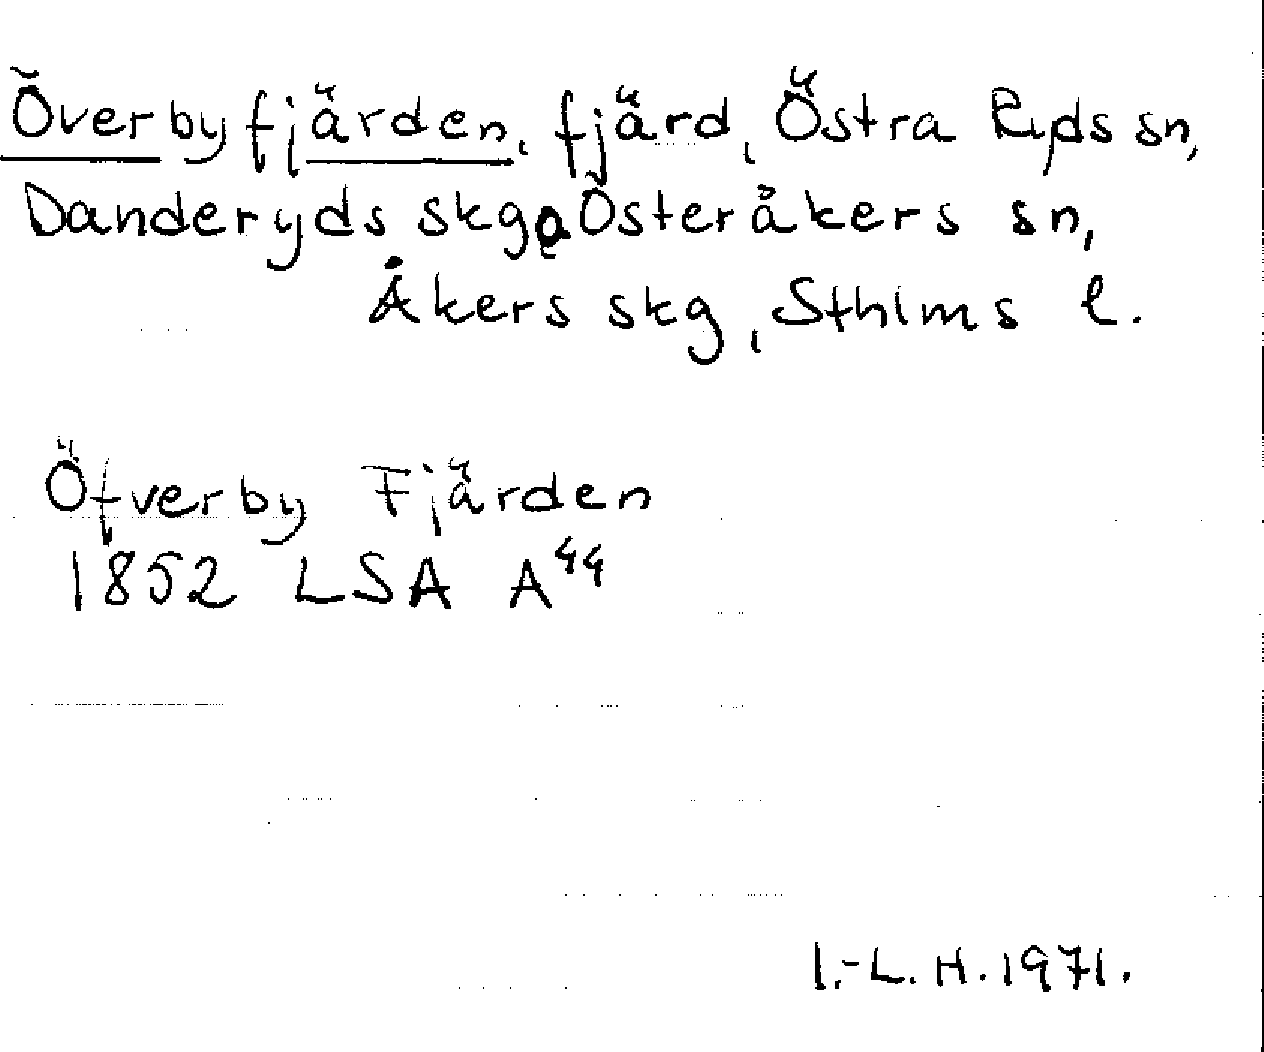 Överbyfjärden, fjärd, Östra Ryds sn,
Danderyds skg, Österåkers sn,
Åkers skg, Sthlms l.
Öfverby Fjärden
1852 LSA A44
I.-L. H. 1971.